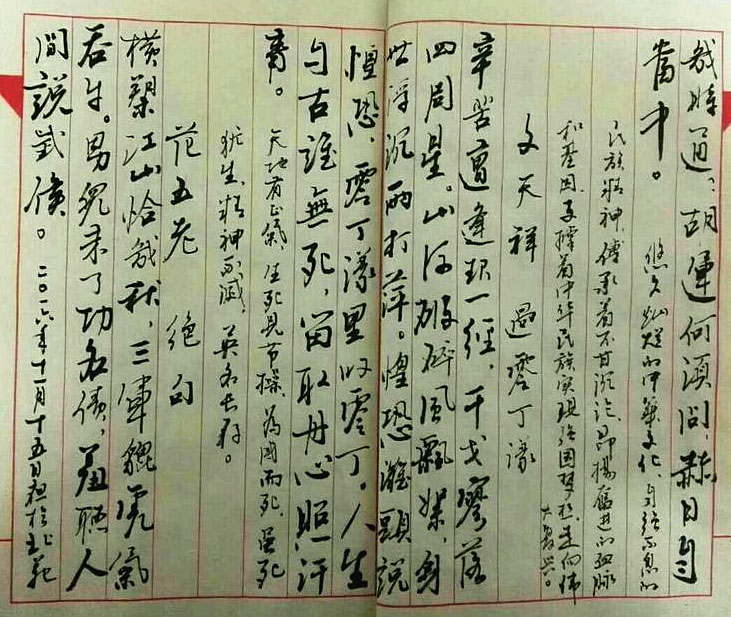 幾時通，胡運何須問，赫日自
當中。悠久燦爛的中華文化，自強不息的
民族精神，傳承着不甘沉淪、昂揚奮進的血脉
和基因，支撑着中华民族实現强国夢想，走向伟
大复兴。
文天祥 過零丁洋
辛苦遭逢起一經，干戈寥落
四周星。山河破碎風飄絮，身
世浮沉雨打萍。惶恐灘頭説
惶恐，零丁洋里叹零丁。人生
自古誰無死，留取丹心照汗
青。天地有正氣，生死見节操，為國而死，虽死
犹生，精神不滅，英名长存。
范五老 绝句
横槊江山恰幾秋，三軍貔虎氣
吞牛。男兒未了功名債，羞聽人
間說武侯。二〇一六年十一月十五日夜於北苑